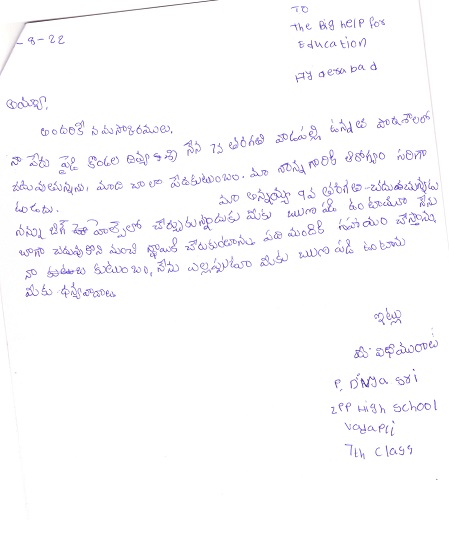 -8-22
TO
The Big help for
Education
Hyderabad
అయ్యా,
అందరికి నమస్కారములు.
నా పేరు పైడి కొండల దివ్య శ్రీ నేను 7వ తరగతి వాడపల్లి ఉన్నత పాఠశాలలో
చదువుతున్నాను. మాది చాలా పేదకుటుంబం. మా నాన్నగారికి ఆరోగ్యం సరిగా
ఉండదు. మా అన్నయ్య 9వ తరగతి చదువుతున్నాడు
నన్ను బిగ్ హెల్ప్‌లో చేర్చుకున్నాడుకు మీకు ఋణపడి ఉంటాయూ నేను
బాగా చదువుకొని మంచి స్థాయికి చేరుకుంటాను. పది మందికి సహాయం చేస్తాను.
నా కుటుంబం, నేను ఎల్లప్పుడూ మీకు ఋణపడి ఉంటాను
మీకు ధన్యవాదాలు
ఇట్లు
మీ విధేయురాలు
P. Divya Sri
ZPP High School
Vadapalli
7th Class